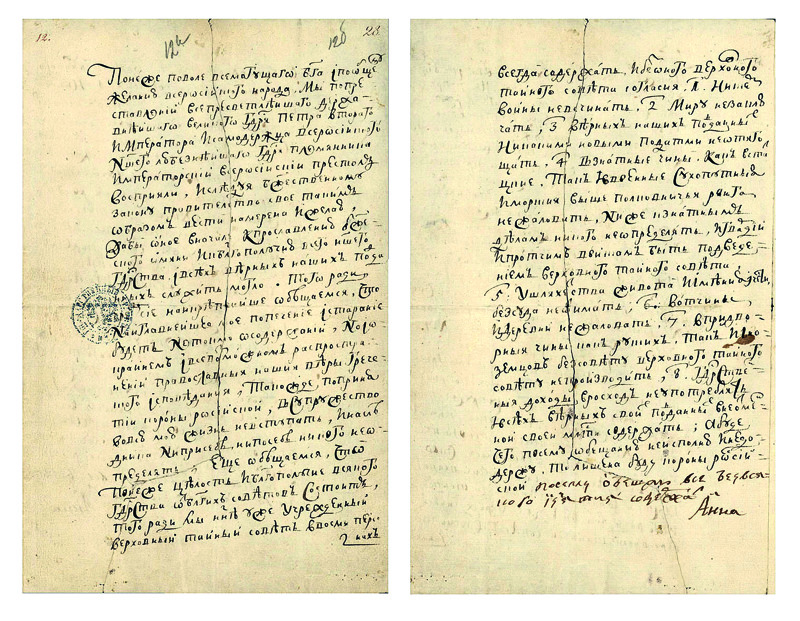 12. 12а 12б 23
Понеже поволе всемогущаго бга ипообще
желанию всеросийского народа, мы попре
ставлениі всепресветлеишаго держа-
внеишаго великого гдря петра второго
императора исамодержца всеросийского
ншего любезнеишаго гдря племянника
императорскиі всеросиискиі престолъ
восприяли, іследуя бжественному
закону правителство свое такимъ
образомъ вести намерена и желаю,
дабы оное вначале кпрославлению бже-
ского имяни иблагополучию всего ншего
гдрства, івсехъ верныхъ нашихъ подда
ныхъ служить могло. Того ради
чрезъ сие наикрепчаише обещаемся, что
наиглавнеишее мое попечение істарание
будетъ нетокмо осодержаниі, но іо
краинемъ івсевозможномъ распростра-
нениі православныя нашея веры грече-
ского ісповедания, такожде поприня
тиі короны росиискоі, всупружество
вовсю мою жизнь невступать, инасле
дника ниприсебе нипосебе никого нео-
пределять, еще обещаемся, что
понеже целость иблагополучие всякого
гдрства отблгихъ советовъ состоитъ,
того ради мы ныне уже учрежденныі
верховныі таиныі советъ ввосми персо
нахъ
всегда содержать, ибезоного верховного
таиного совета согласия, 1. Никем
воины невсчинать, 2. Миру незаклю
чать, 3. верныхъ нашихъ подданныхъ
никакими новыми податми неотяго
щать. 4. Взнатные чины, какъ вста
цкие, такъ ивоенные сухопутныя
иморския выше полковничья ранга
нежаловать, ниже кзнатнымъ
деламъ никого неопределять, игвардиі
ипротчимъ воискам быть подведе-
ниемъ верховного таиного совета
5. Ушляхетства живота иимения ичести
безсуда неотымать, 6. Вотчины
идеревни нежаловать, 7. Впридво-
рныя чины какъ руских, такъ ино-
земцовъ безсовету верховного таиного
совету непроизводить, 8. гдрстве-
ныя доходы врасходъ неупотреблять
івсехъ верныхъ своихъ подданныхъ внеотме
ннои своеи млсти содержать; абуде
чего посему обещанию неисполню инедо-
держу, то лишена буду короны росиі-
скои посему обещаю все безвся
кого изъятия содержать
Анна